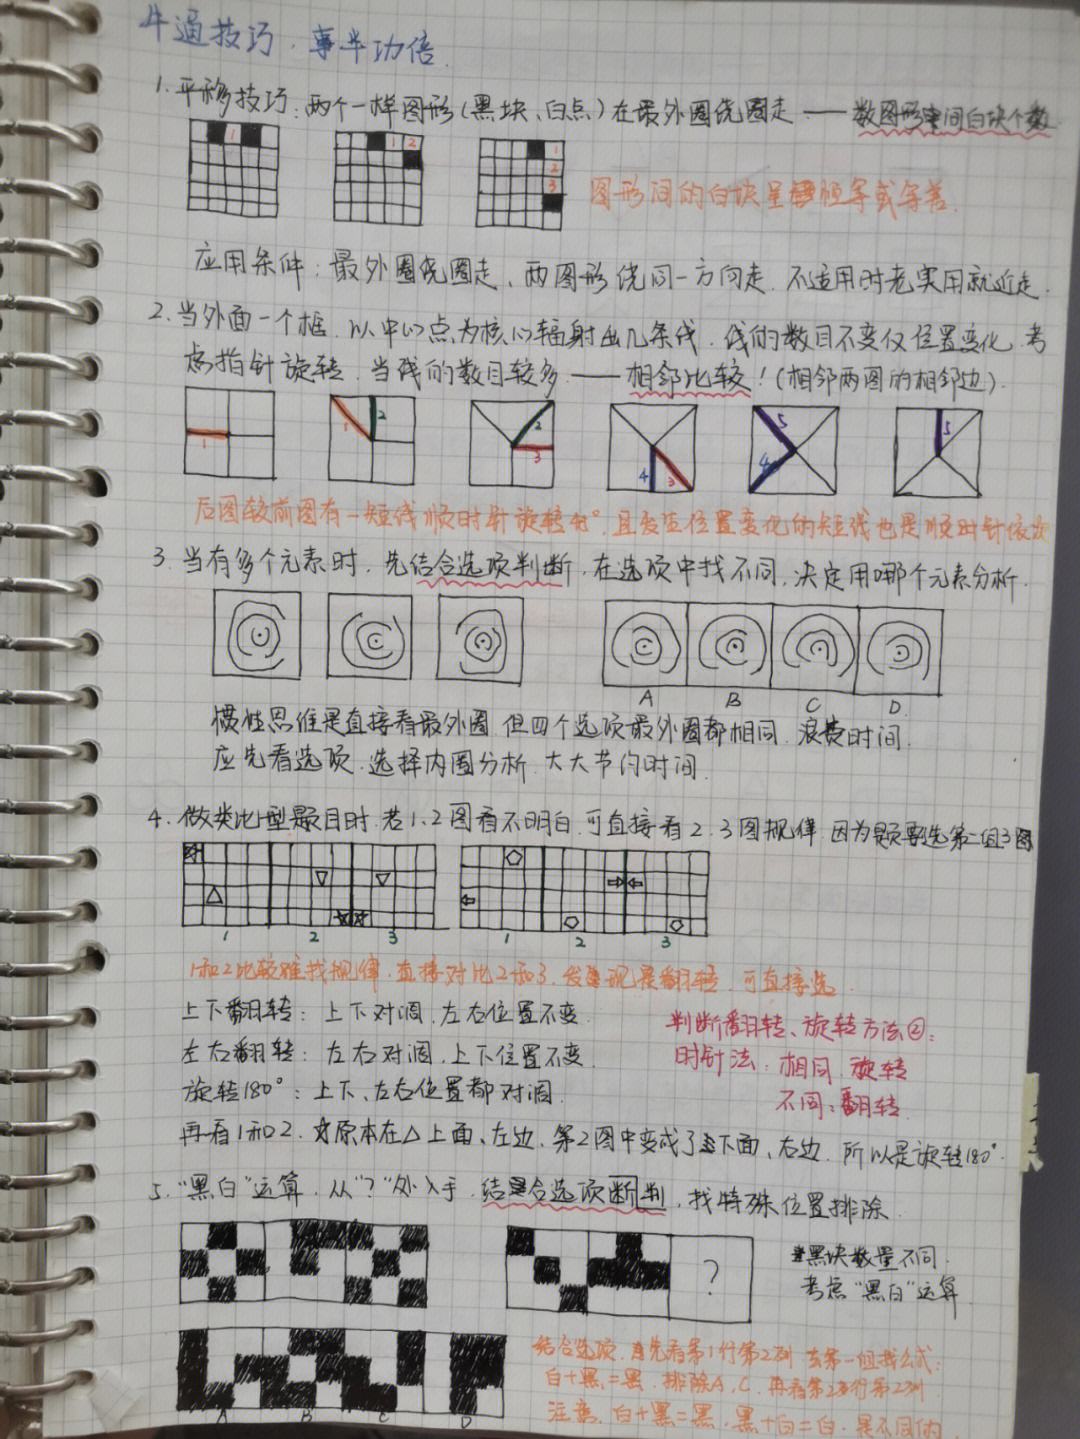 牛逼技巧，事半功倍.
1.平移技巧:两个一样图形(黑块、白点)在最外圈绕圈走 —— 数图形中间白块个数
1
1 2
1
2
3
图形间的白块呈恒等或等差.
应用条件:最外圈绕圈走、两图形绕同一方向走.不适用时老实用就近走.
2.当外面一个框，以中心点为核心辐射出几条线，线的数目不变仅位置变化.考
虑指针旋转.当线的数目较多——相邻比较!(相邻两图的相邻边).
1
1 2
2 3
4 3
5 4
5
后图较前图有一短线顺时针旋转 且发生位置变化的短线也是顺时针依次
3.当有多个元素时，先结合选项判断，在选项中找不同，决定用哪个元素分析.
A B C D.
惯性思维是直接看最外圈，但四个选项最外圈都相同，浪费时间.
应先看选项，选择内圈分析，大大节约时间.
4.做类比型题目时.若1、2图看不明白，可直接看2、3图规律.因为题要选第二组3图
1 2 3
1 2 3
1和2比较难找规律，直接对比2和3，发现是翻转，可直接选.
上下翻转:上下对调，左右位置不变.
左右翻转:左右对调，上下位置不变.
旋转180°:上下、左右位置都对调.
判断翻转、旋转方法②:
时针法:相同，旋转
不同:翻转.
再看1和2.☆原本在△上面、左边，第2图中变成了下面、右边.所以是旋转180°.
5."黑白"运算，从"?"处入手，结合选项断判，找特殊位置排除.
?
黑块数量不同.
考虑"黑白"运算
A B C D
结合选项，先看第1行第2列 去第一组找公式:
白+黑=黑，排除A、C.再看第2行第2列
注意，白+黑=黑，黑+白=白.是不同的.